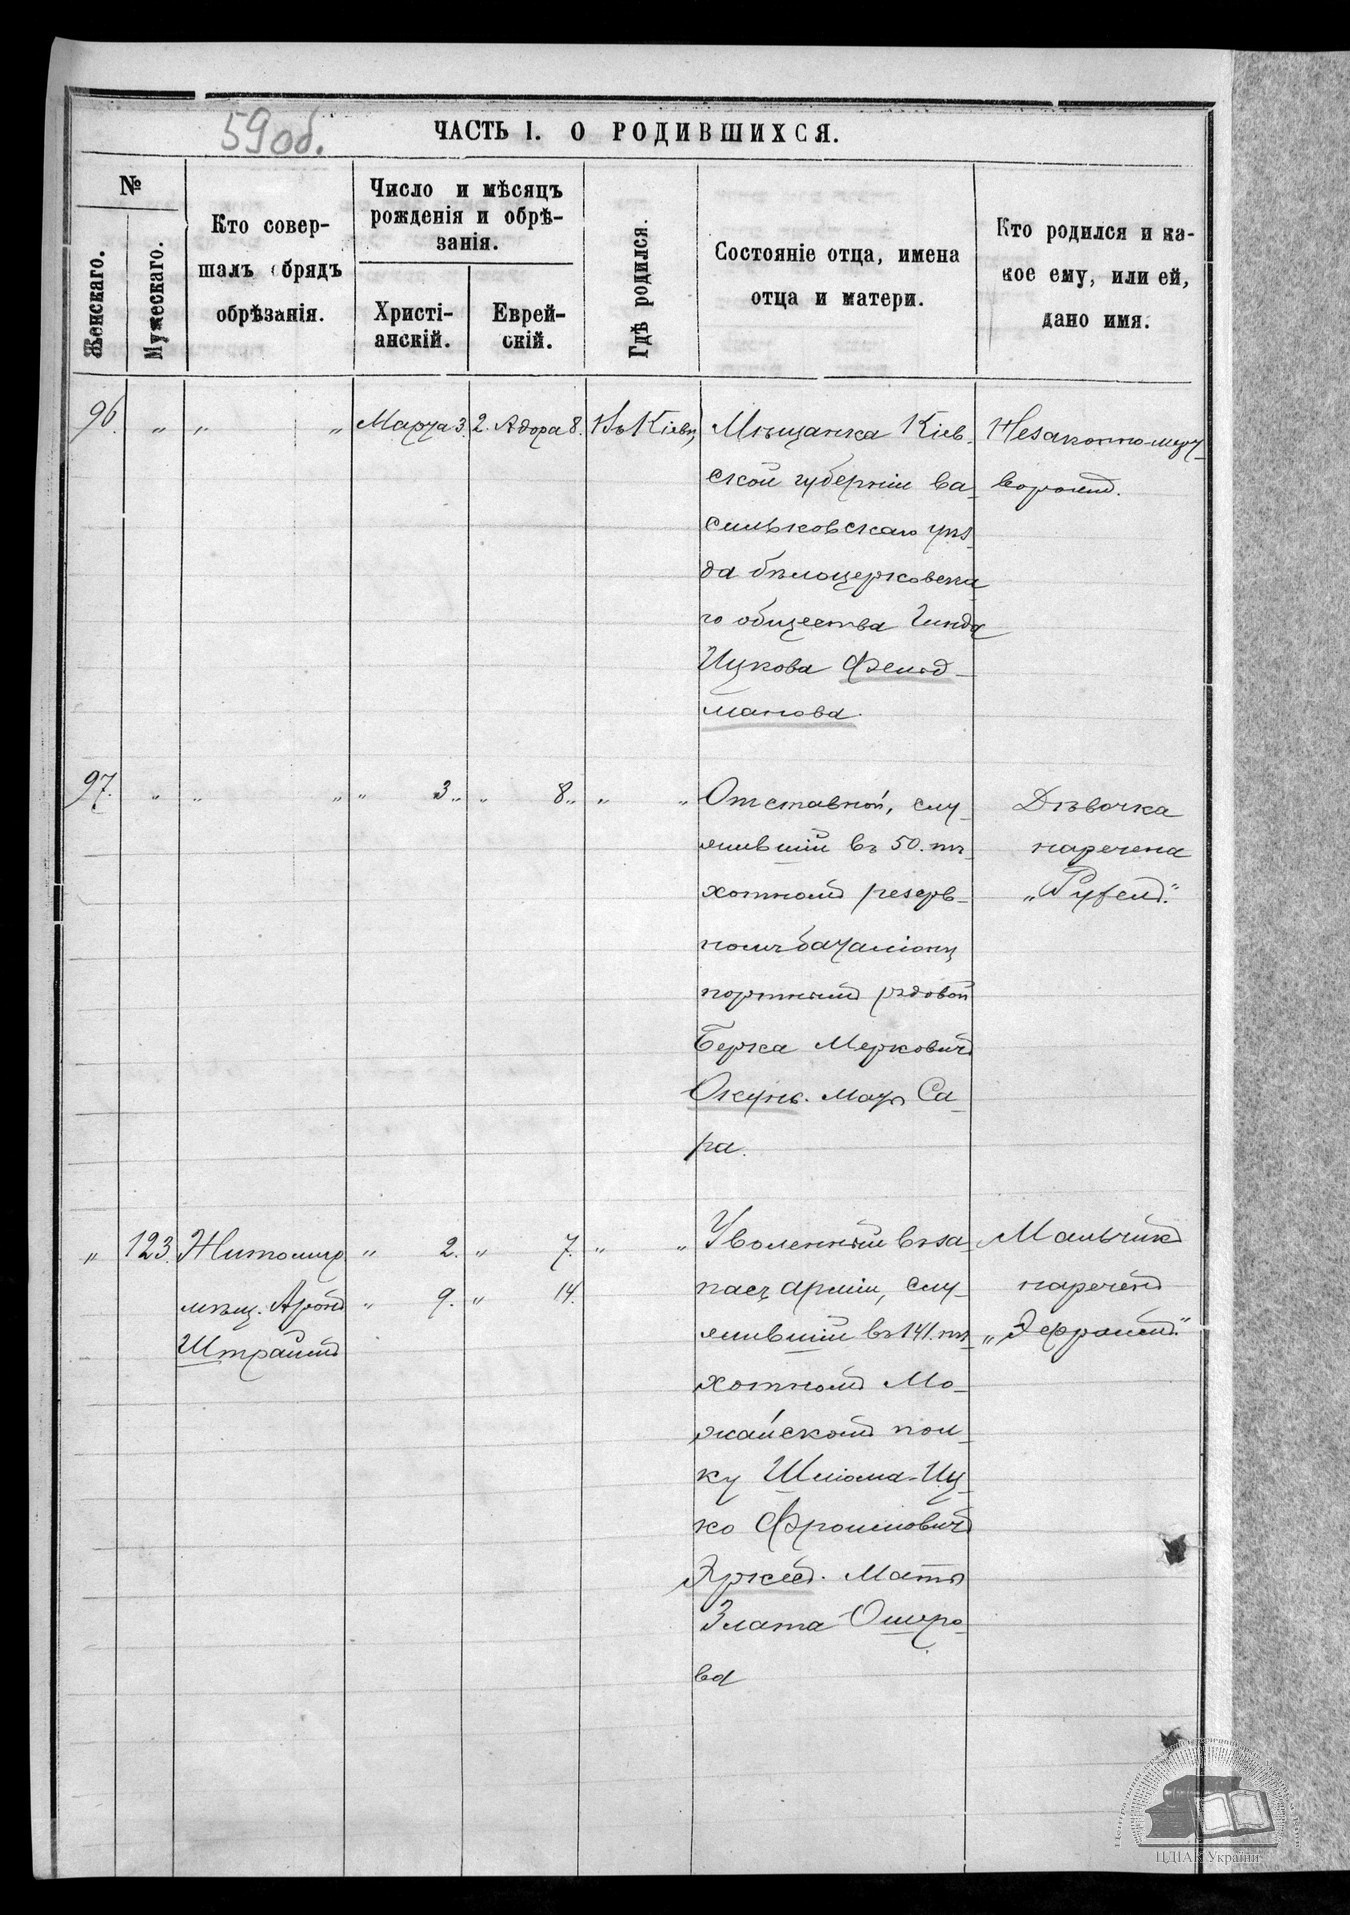 59 об.
ЧАСТЬ I. О РОДИВШИХСЯ.
№
Женскаго.
Мужескаго.
Кто совер-
шалъ обрядъ
обрѣзанія.
Число и мѣсяцъ
рожденія и обрѣ-
занія.
Христі-
анскій.
Еврей-
скій.
Гдѣ родился.
Состояніе отца, имена
отца и матери.
Кто родился и ка-
кое ему, или ей,
дано имя.
96. " " " Марта 3. 2. Адора 8. Въ Кіевѣ
Мѣщанка Кіев-
ской губерніи Ва-
сильковскаго уѣз-
да бѣлоцерковска-
го общества Гинда
Ицкова Фельд-
манова.
Незаконно-мерт-
ворожд.
97. " " " " 3. " 8. " "
Отставной, слу-
жившій въ 50. пѣ-
хотномъ резерв-
номъ баталіонѣ
портнымъ рядовой
Берка Меркович
Окунь. Мать Са-
ра.
Дѣвочка
наречена
" 123. Житомир. " 2. " 7. " "
мѣщ. Аронъ " 9. " 14.
Штраймъ
Уволенный въ за-
пасъ арміи, слу-
жившій въ 141. пѣ-
хотномъ Мо-
жайскомъ пол-
ку Шлiома-Иц-
ко Фроимовичъ
Мать
Злата Ошеро-
ва
Мальчикъ
нареченъ
„Эфроимъ."
ЦДІАК України